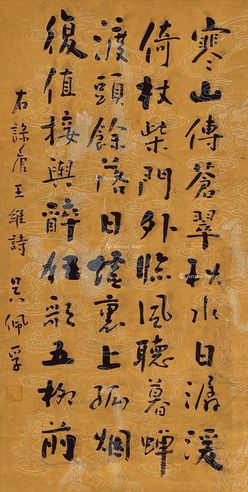 寒山傳蒼翠秋水日潺湲
倚杖柴門外臨風聽暮蟬
渡頭餘落日墟裏上孤烟
復值接輿醉狂歌五柳前
右錄唐王維詩 吳佩孚